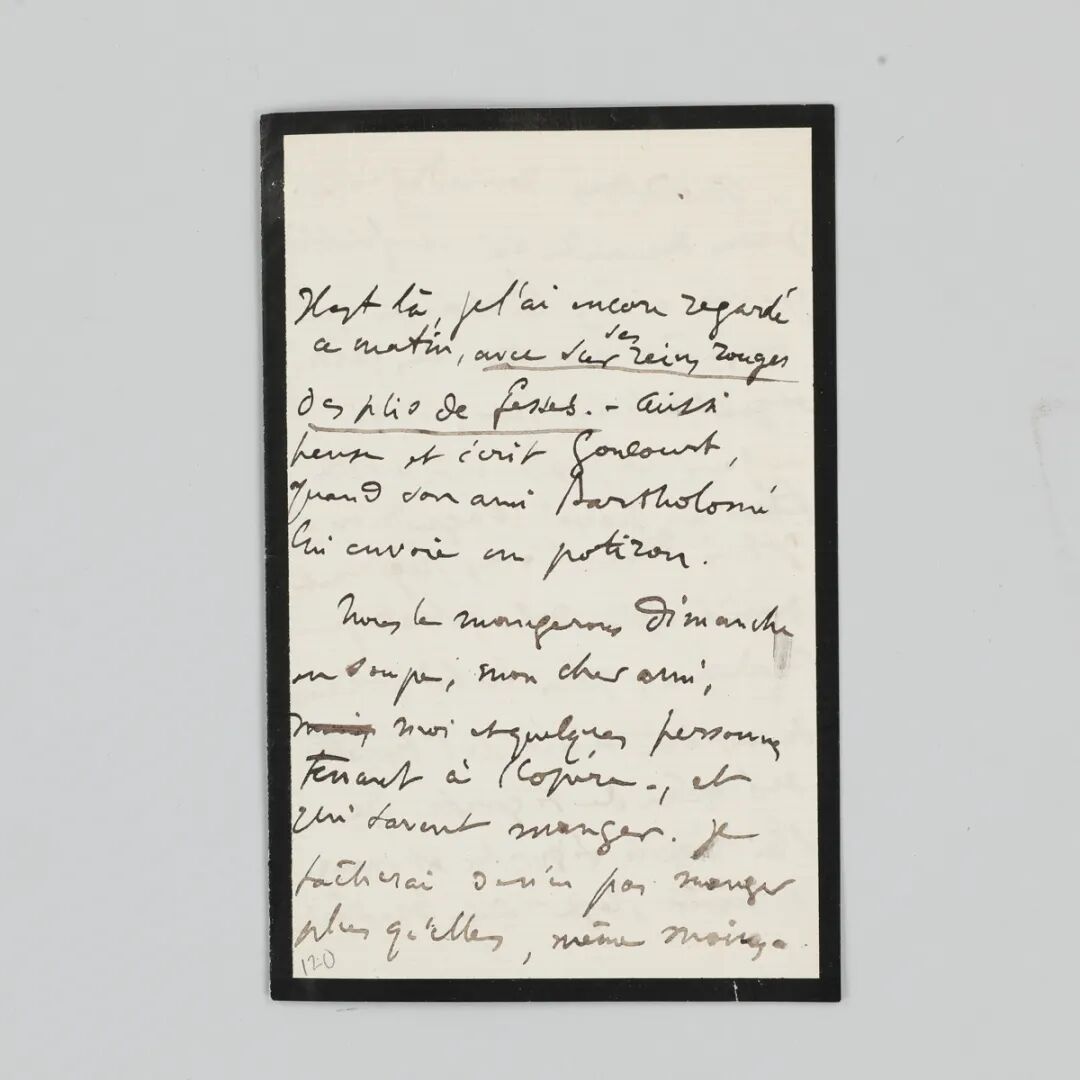 Il est là, je l'ai encore regardé
ce matin, avec sur ses reins rouges
des plis de fesses. - Aussi
pense et écrit Goncourt,
quand son ami Bartholomé
lui envoie un potiron.
Nous le mangerons dimanche
en soupe, mon cher ami,
moi et quelques personnes
tenant à l'opéra -, et
qui savent manger. Je
tâcherai de n'en pas manger
plus qu'elles, même moins.
120